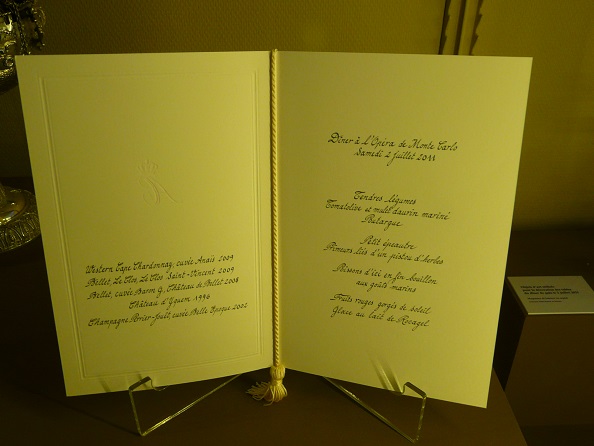 Western Cape Chardonnay, cuvée Anaïs 2009
Bellet, Le Clos, Le Clos Saint-Vincent 2009
Bellet, cuvée Baron G, Château de Bellet 2008
Château d'Yquem 1996
Champagne Perrier-Jouët, cuvée Belle Epoque 2002
Dîner à l'Opéra de Monte Carlo
Samedi 2 juillet 2011
Tendres légumes
Tomatolive et mulet daurin mariné
Butargue
Petit épeautre
Primeurs liés d'un pistou d'herbes
Poissons d'ici en fin bouillon
aux goûts marins
Fruits rouges gorgés de soleil
Glace au lait de Roagel